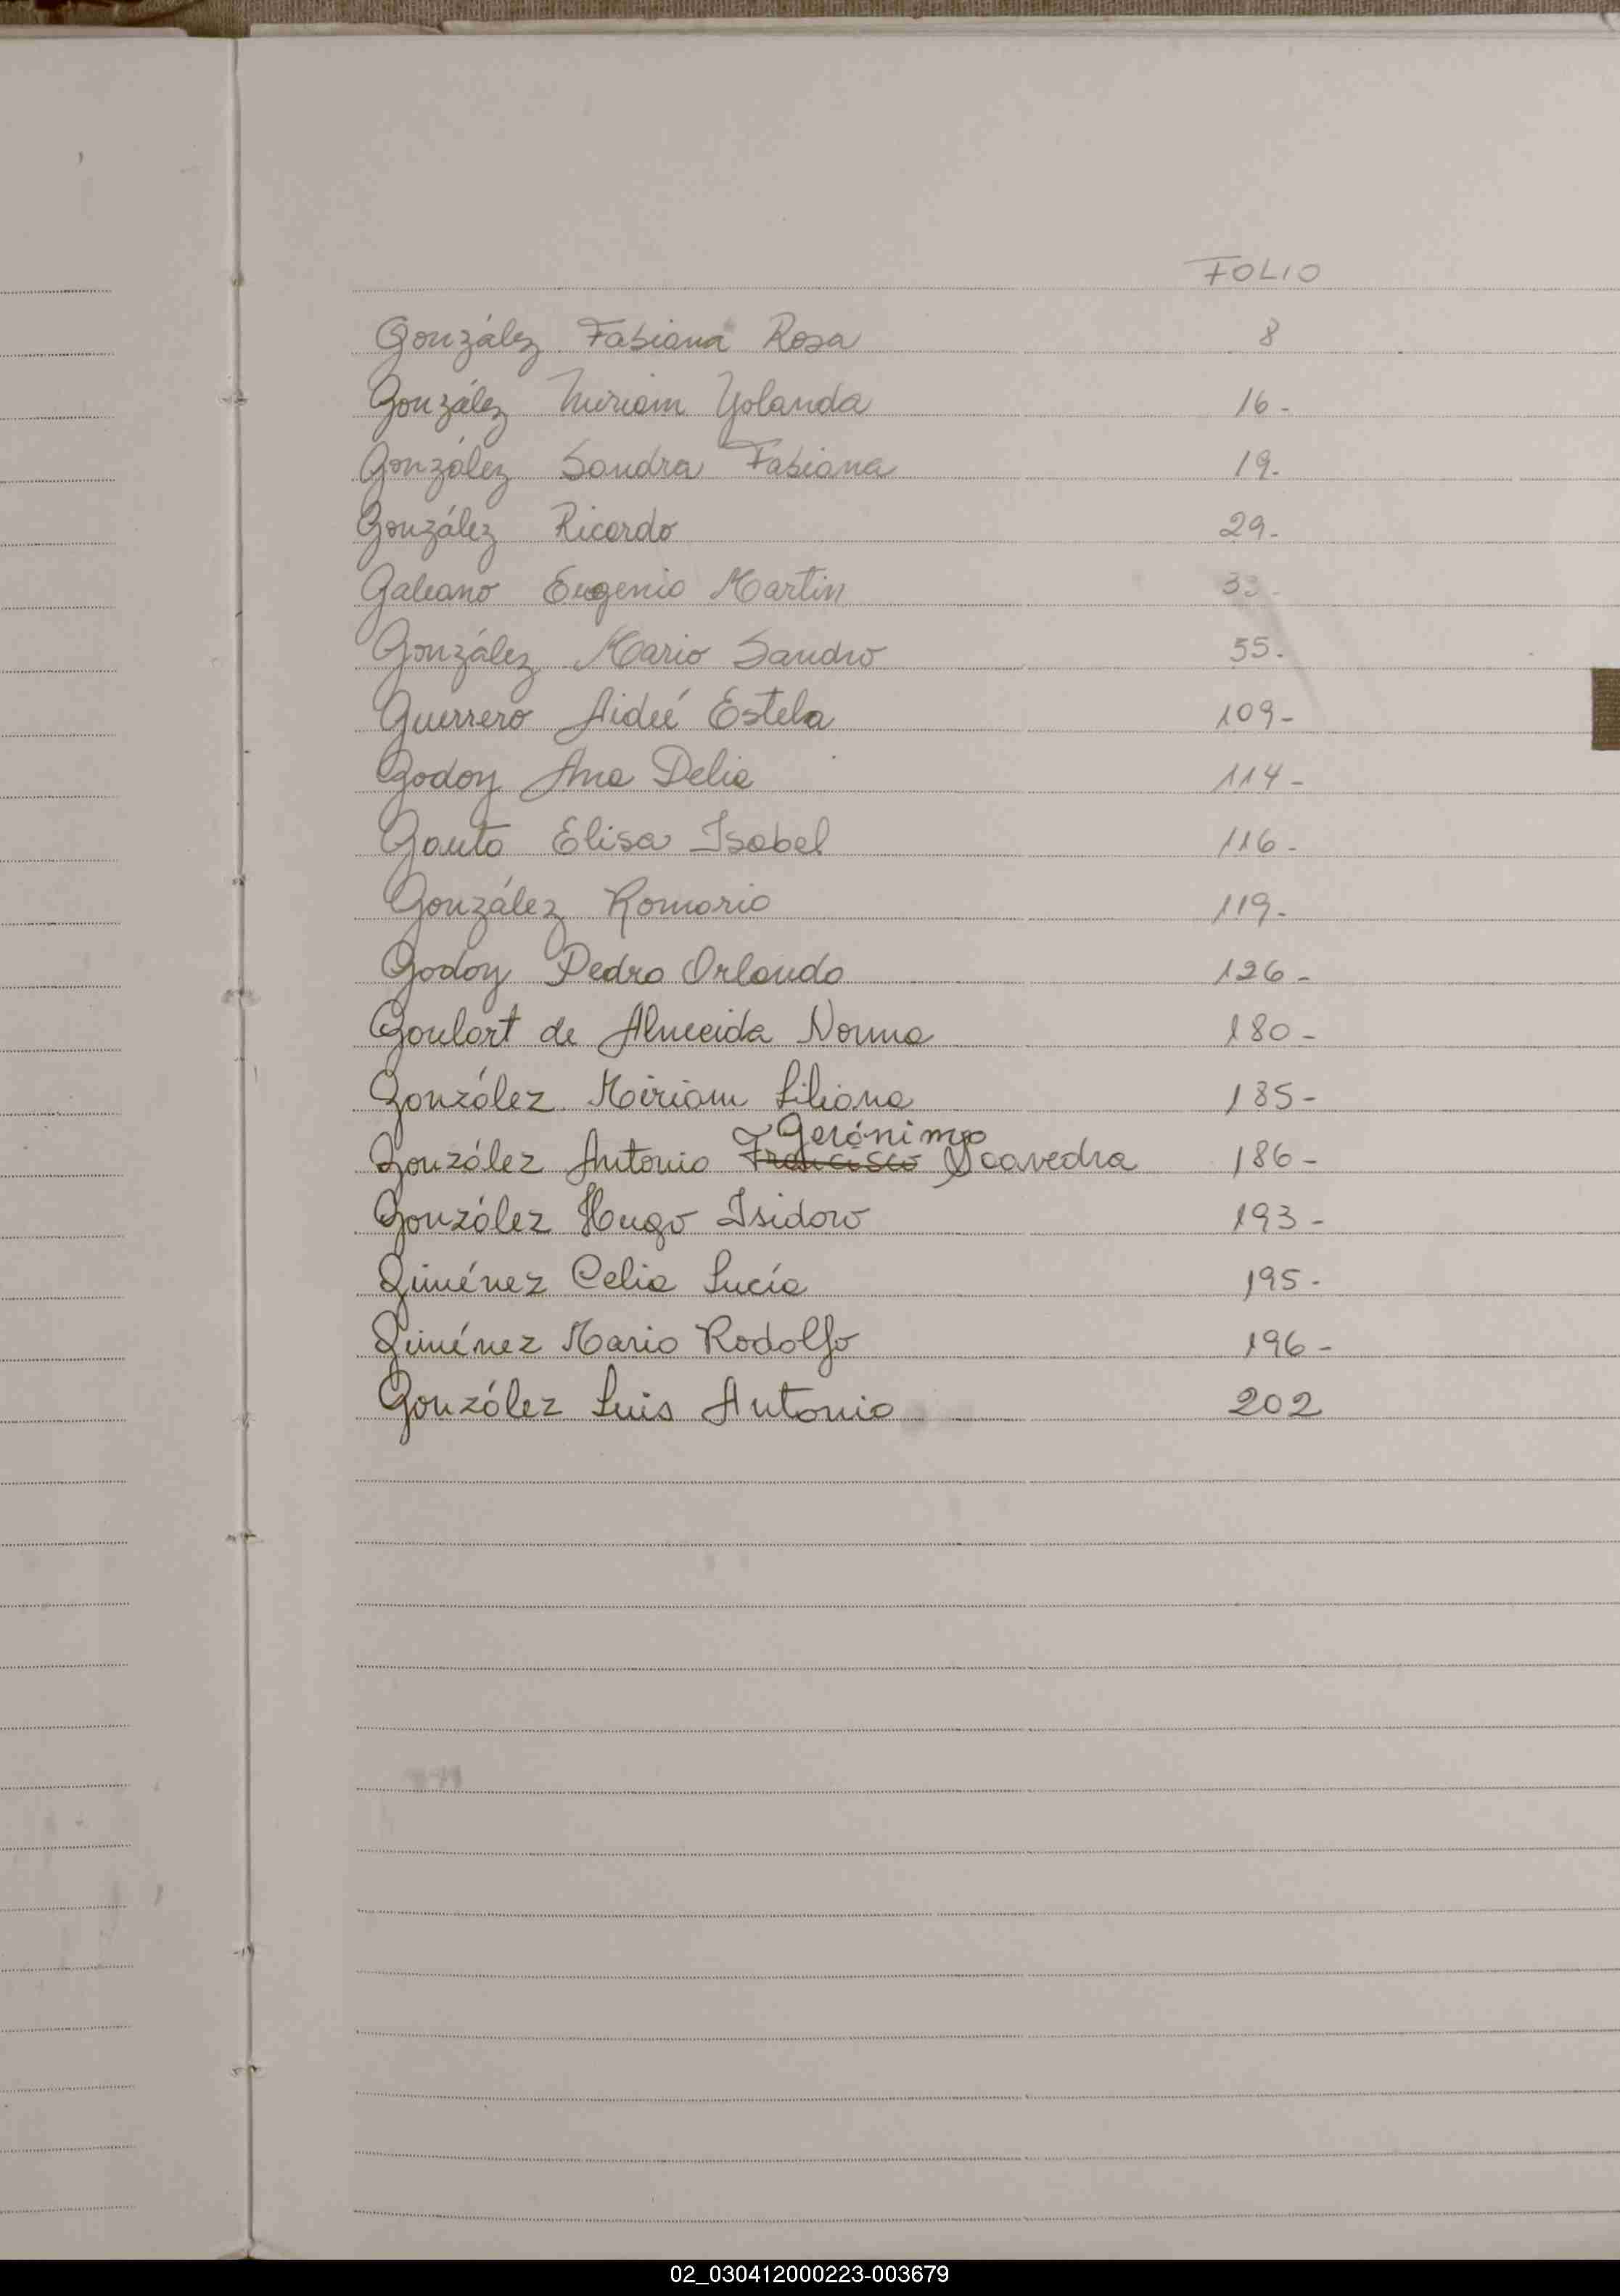 FOLIO
González Fabiana Rosa 8
González Miriam Yolanda 16-
González Sandra Fabiana 19.
González Ricardo 29-
Galeano Eugenio Martin 33-
González Mario Sandro 55.
Guerrero Aideé Estela 109-
Godoy Ana Delia 114-
Gauto Elisa Isabel 116-
González Romario 119-
Godoy Pedro Orlando 126-
Goulart de Almeida Norma 180-
González Miriam Liliana 185-
Gerónimo
González Antonio Francisco Saavedra 186-
González Hugo Isidoro 193-
Giménez Celia Lucía 195-
Giménez Mario Rodolfo 196-
González Luis Antonio 202
02_030412000223-003679